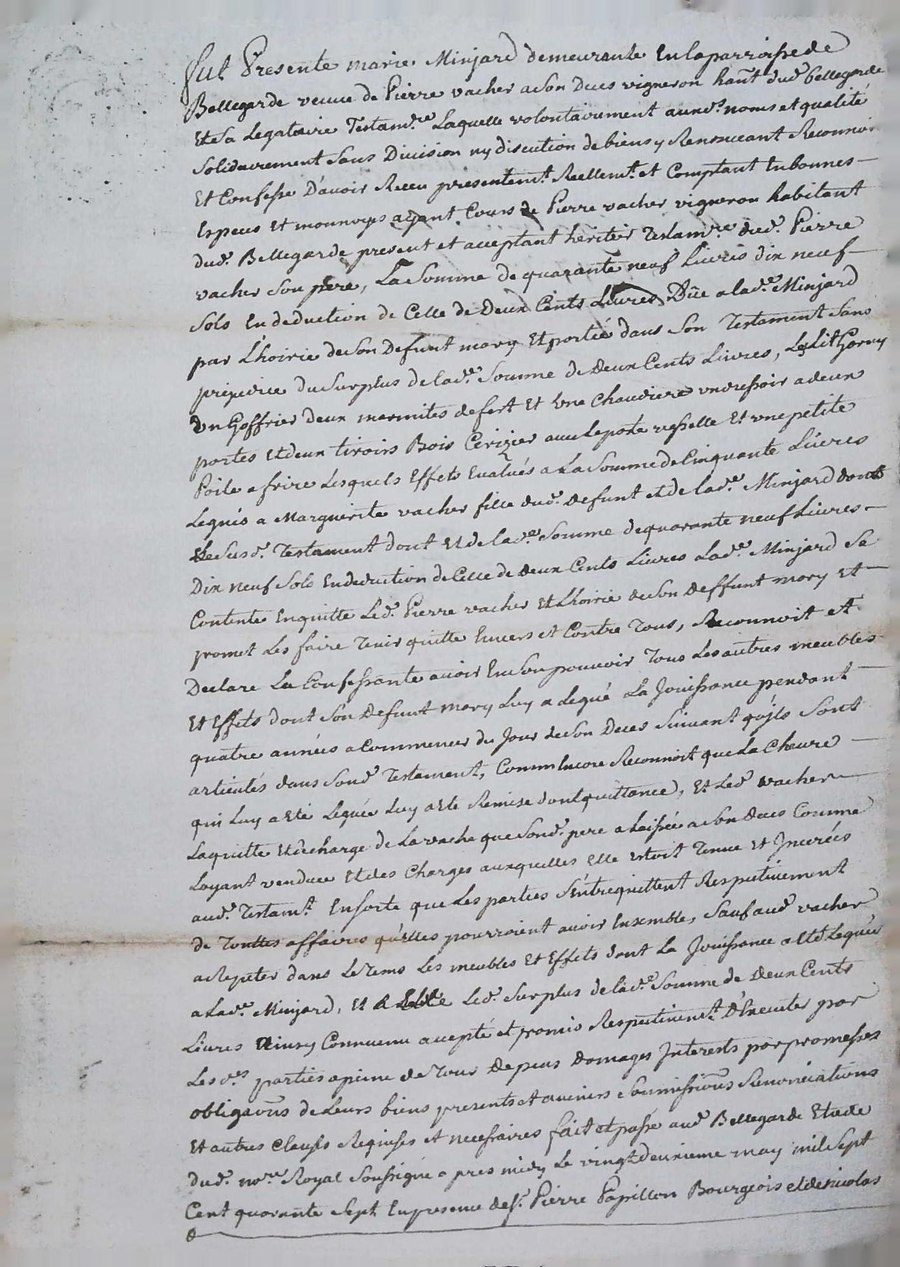 fut Presente marie Minjard demeurante En la parroisse de
Bellegarde veuve de Pierre vacher a son Deces vigneron hant dud. bellegarde
Et sa Legataire Testam.re Laquelle volontairement aux d. noms et qualité
Solidairement Sans Division ny discution de biens y Renonceant Reconnoit
Et Confesse D'avoir Receu presentem.t Reellem.t et Comptant En bonnes
Especes Et monnoys ayant Cours de Pierre vacher vigneron habitant
dud. Bellegarde present et acceptant heritier Testam.re dud. Pierre
vacher Son pere, La Somme de quarante neuf Livres dix neuf
Sols En deduction de Celle de Deux Cents Livres Düe a lad.e Minjard
par L'hoirie de Son Defunt mary Et portée dans Son Testament Sans
prejudice du Surplus de lad.e Somme de Deux Cents Livres, Le Lit Garny
Un Goffrier deux marmites de fert Et Une Chaudiere un dressoir a deux
portes et deux tiroirs Bois Cerizier avec Le poste vesselle Et une petite
Poile a frire Lesquels Effets Evalués a La Somme de Cinquante Livres
Legués a Marguerite vacher fille dud. Defunt et de lad.e Minjard dans
Le Susd. Testament dont Et de lad.e Somme de quarante neuf Livres
Dix neuf Sols En deduction de Celle de Deux Cents Livres Lad.e Minjard Se
Contente En quitte Led. Pierre vacher Et L'hoirie de Son Deffunt mary et
promet Les faire Tenir quitte Envers et Contre Tous, Reconnoit et
Declare La Confessante avoir En Son pouvoir Tous Les autres meubles
Et Effets dont Son Defunt mary Luy a Legué La Jouissance pendant
quatre années a Commencer du Jour de Son Deces Suivant qu'ils Sont
articulés dans Sond. Testament, Comm Encore Reconnoit que La Chevre
qui Luy a Eté Leguée Luy a Eté Remise dont quittance, Et Led. vacher
La quitte Et decharge de La vache que Sond. pere a Laissée a Son Deces Comme
Loyant vendue Et des Charges auxquelles Elle Estoit Tenue Et Inserées
aud. Testam.t En sorte que Les parties S'Entrequittent Respectivement
de Touttes affaires qu'Elles pourroient avoir Ensemble, Sauf aud. vacher
a Repeter dans Le Tems Les meubles Et Effets dont La Jouissance a Eté Leguée
a Lad.e Minjard, Et a Elle Led. Surplus de lad.e Somme de Deux Cents
Livres Ainsy Convenu accepté et promis Respectivem.t D'Executer par
Les d.es parties a peine de Tous Depens Domages Interests par promesses
obligaons de Leurs biens presents et avenirs Soumissions Renonciations
Et autres Clauses Requises et necessaires fait et passé aud. Bellegarde Etude
dud. no.re Royal Soussigné apres midy Le vingt deuxieme may mil Sept
Cent quarante Sept En presence de S.r Pierre Papillon Bourgeois et de nicolas